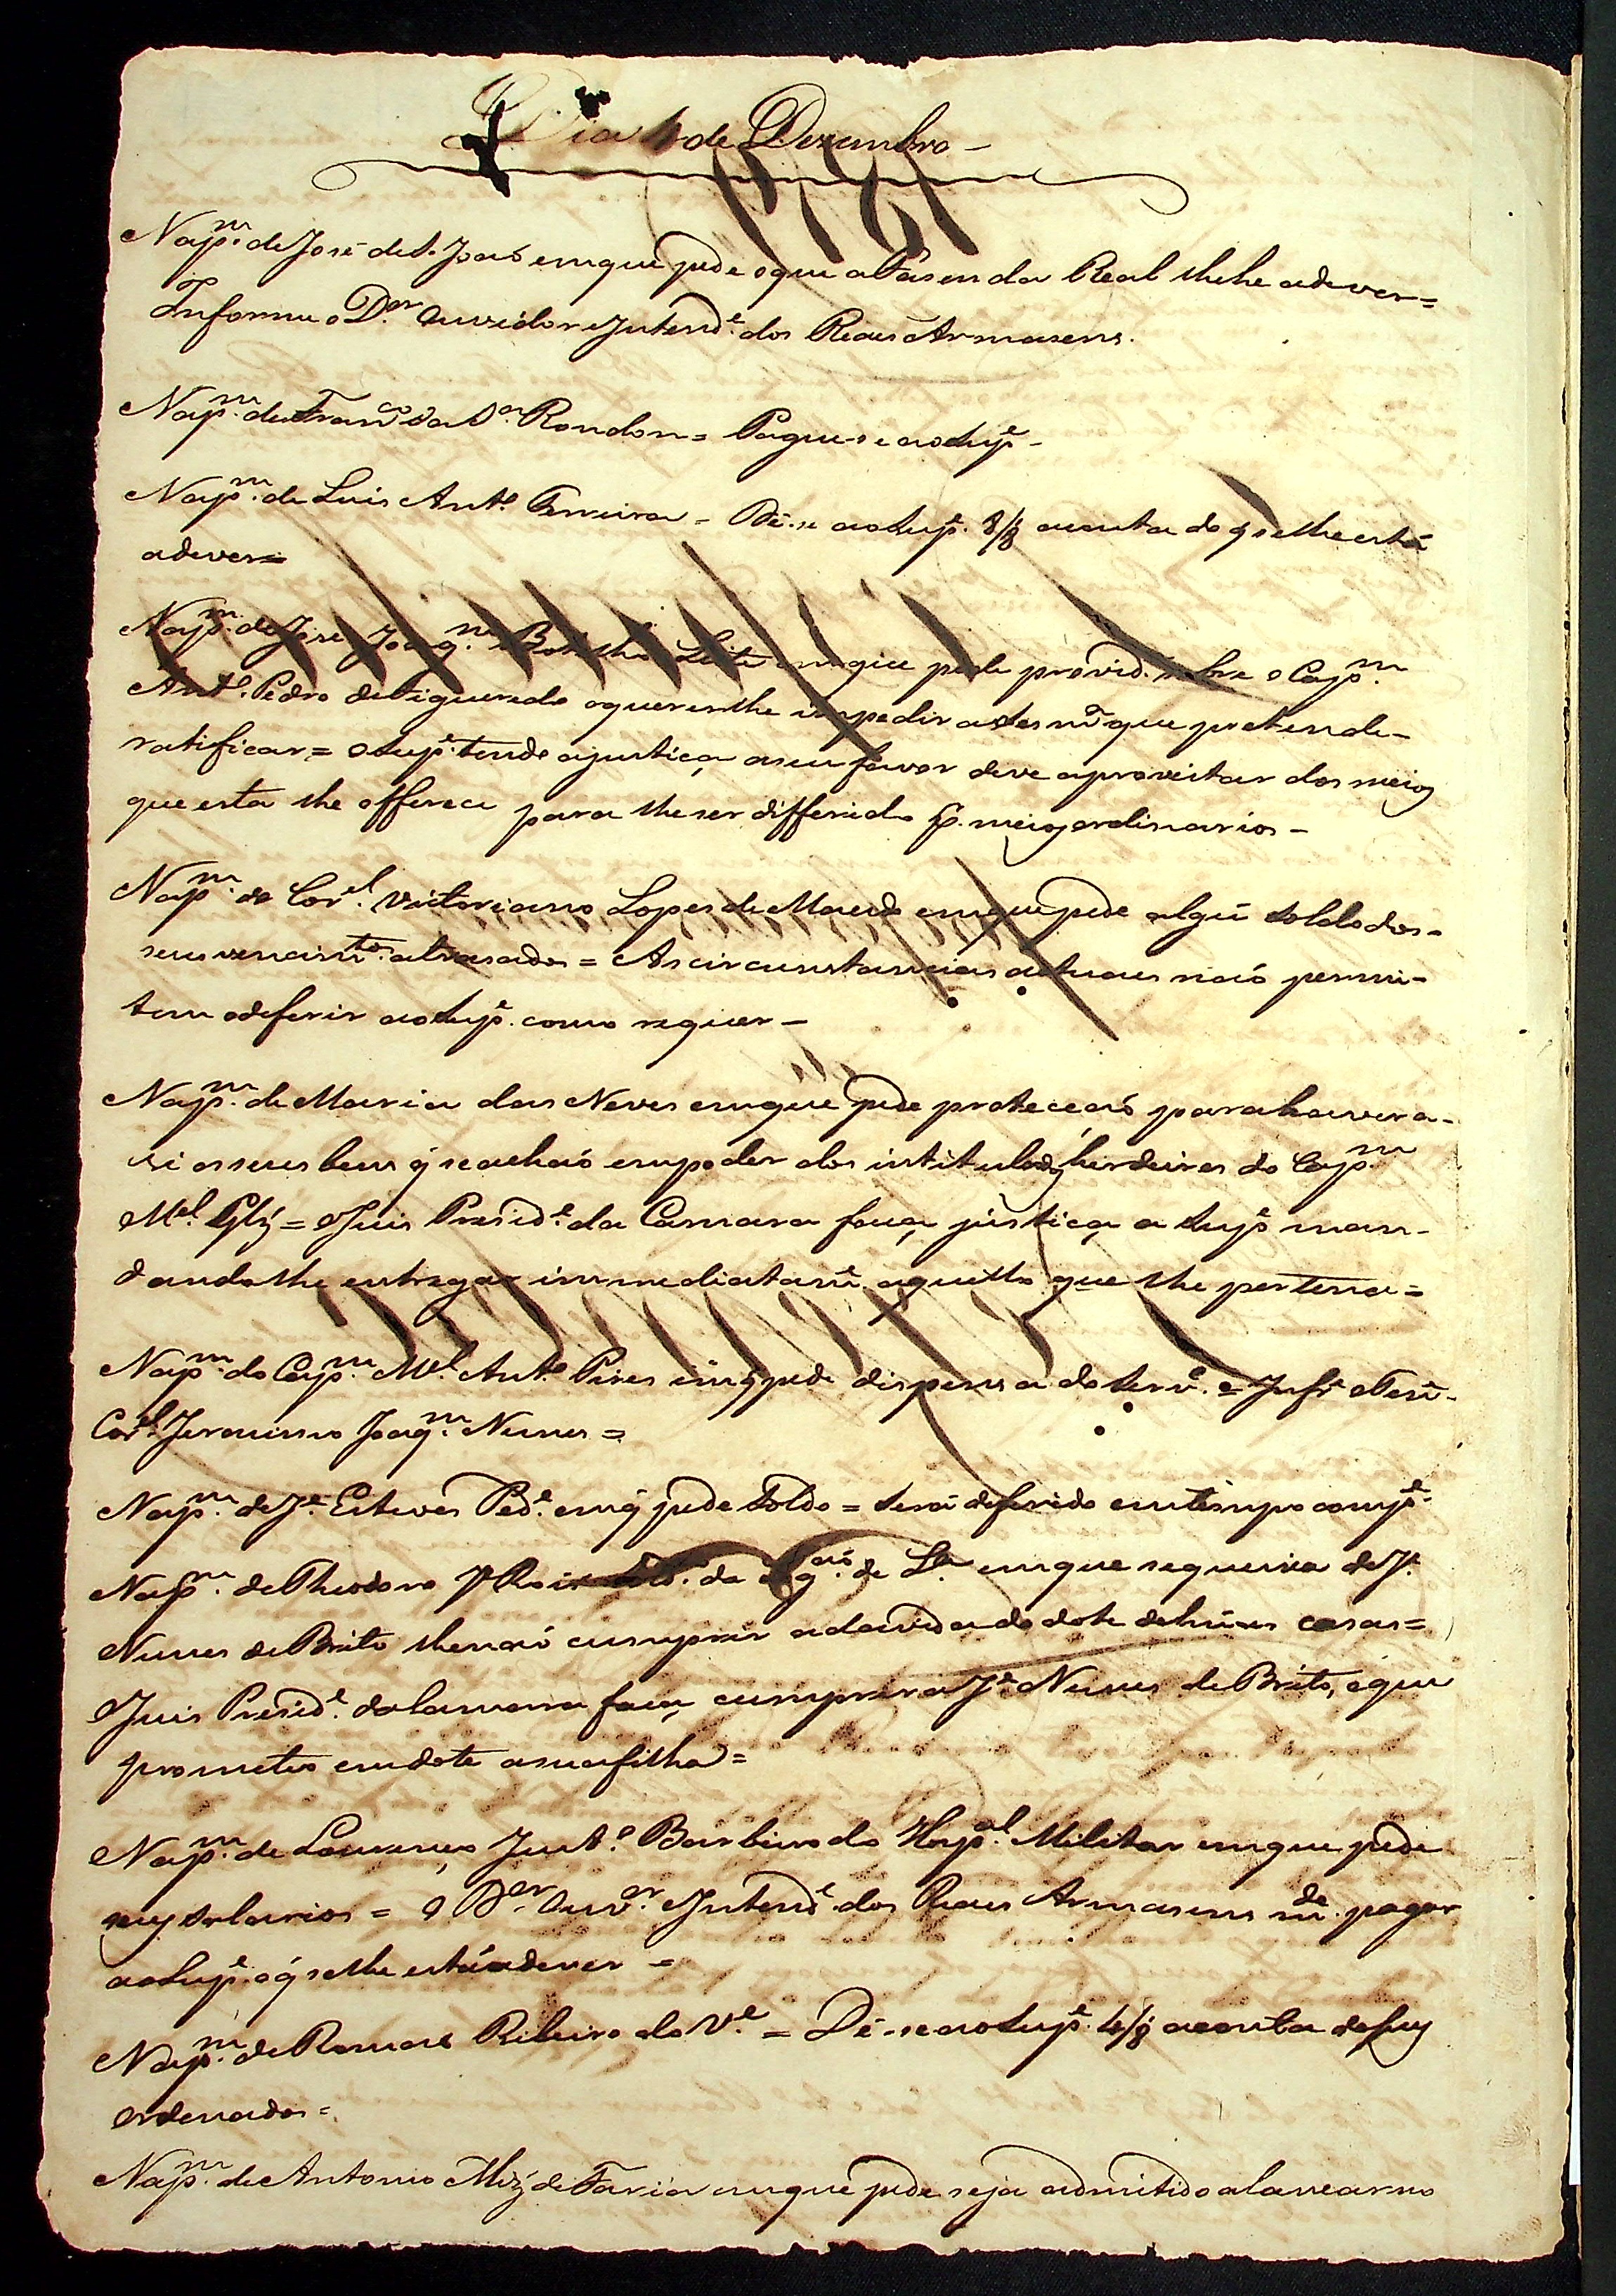 Dia 4 de Dezembro -
Nap.m de José de S. João em que pede o que a Fasenda Real lhe he a dever =
Informe o D.or Ouvidor e Intend.e dos Reaes Armasens.
Nap.m de Fran.co da S.a Rondon = Pague-se ao Sup.e -
Nap.m de Luis Ant.o Ferreira - Dê-se ao Sup.e 8/8 a conta do q se lhe está
a dever =
Nap.m de José Joaq.m Botelho Leite em que pede provid.a sobre o Cap.m
Ant.o Pedro de Figueredo o querer lhe impedir a que pretende
ratificar = o Sup.e tendo a justiça a seu favor deve aproveitar dos meios
que esta lhe offerece para lhe ser differido p. meios ordinarios -
Nap.m do Cor.el Victoriano Lopes de Macedo em que pede algũ soldo dos
seus vencim.tos atrasados = As circunstancias actuaes naõ permi-
tem o deferir ao Sup.e como requer -
Nap.m de Maria das Neves em que pede protecçaõ para haver a
si os seus bens q̃ se achaõ em poder dos intitulados herdeiros do Cap.m
M.el Glz̃ = O Juis Presid.e da Camara faça justiça a Sup.e man-
dando lhe entregar immediatam.e aquillo que lhe pertence =
Nap.m do Cap.m M.el Ant.o Pires em q pede dispensa do Serv.o = Infr.e o Ten.e
Cor.el Jeronimo Joaq.m Nunes =
Nap.m de J.e Esteves Ped.e em q̃ pede Soldo = Será deferido em tempo comp.e
Nap.m de Theodoro Roiz da de L.a em que requeira de J.e
Nunes de Brito lhe naõ cumprir a davida do dote de hũas casas =
O Juis Presid.e da Camara faça cumprir a J.e Nunes de Brito, o que
prometeo em dote a sua filha =
Nap.m de Lourenço Just.o Barbeiro do Hosp.al Militar em que pede
seus salarios = O D.or Ouv.or e Intend.e dos Reaes Armasens m.de pagar
ao Sup.e o q̃ se lhe está a dever =
Nap.m de Romaõ Ribeiro do V.e = Dê-se ao Sup.e 4/8 a conta de seus
ordenados =
Nap.m de Antonio Miz̃ de Faria em que pede seja admitido a lancear no